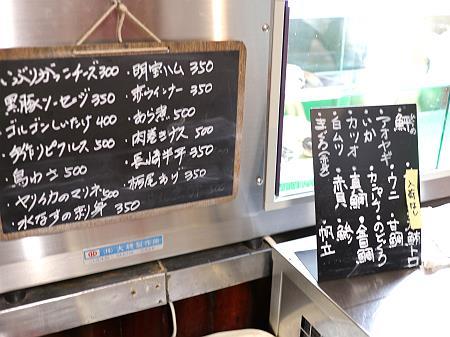 いぶりがっこチーズ 300
黒豚ソーセージ 350
ゴルゴンしいたけ 400
手作りピクルス 500
鳥わさ 500
ヤリイカのマリネ 500
水なすの刺身 350
・明宝ハム 350
・赤ウインナー 350
・あら煮 500
・肉巻きナス 500
・長崎半平 350
・栃尾あげ 350
(株)大穂製作所
・鯛
・アオヤギ
・いか
・カツオ
・白ハタ
・まぐろ(赤身)
・ウニ
・カンパチ
・真鯛
・赤貝
・甘鯛
・のどぐろ
・金目鯛
・鯵
・帆立